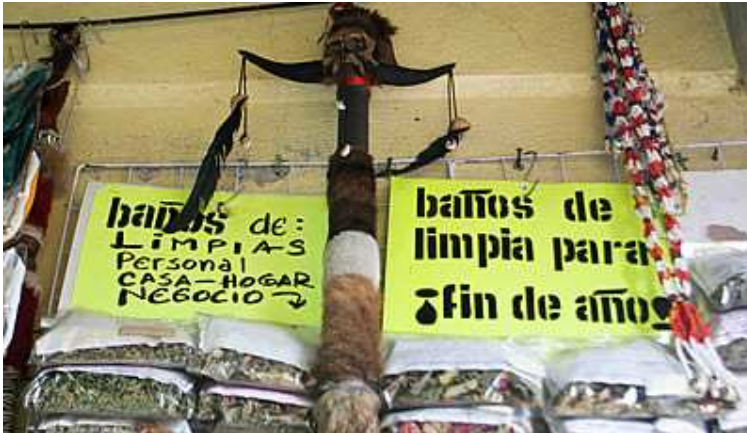 baños de:
LiMPiAS
Personal
CASA-HOGAR
NEGOCIO
baños de
limpia para
fin de años